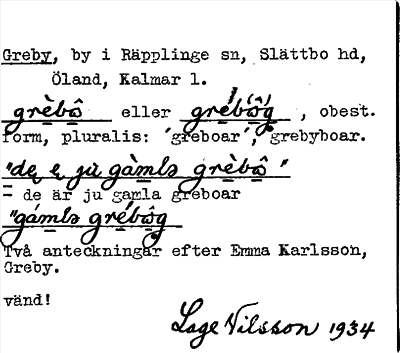 Greby, by i Räpplinge sn, Slättbo hd,
Öland, Kalmar l.
grèbô eller grébồg, obest.
form, pluralis: 'greboar', grebyboar.
"de e ju gàmlə grèbô"
= de är ju gamla greboar
"gámlə grébôg
Två anteckningar efter Emma Karlsson,
Greby.
vänd!
Lage Nilsson 1934